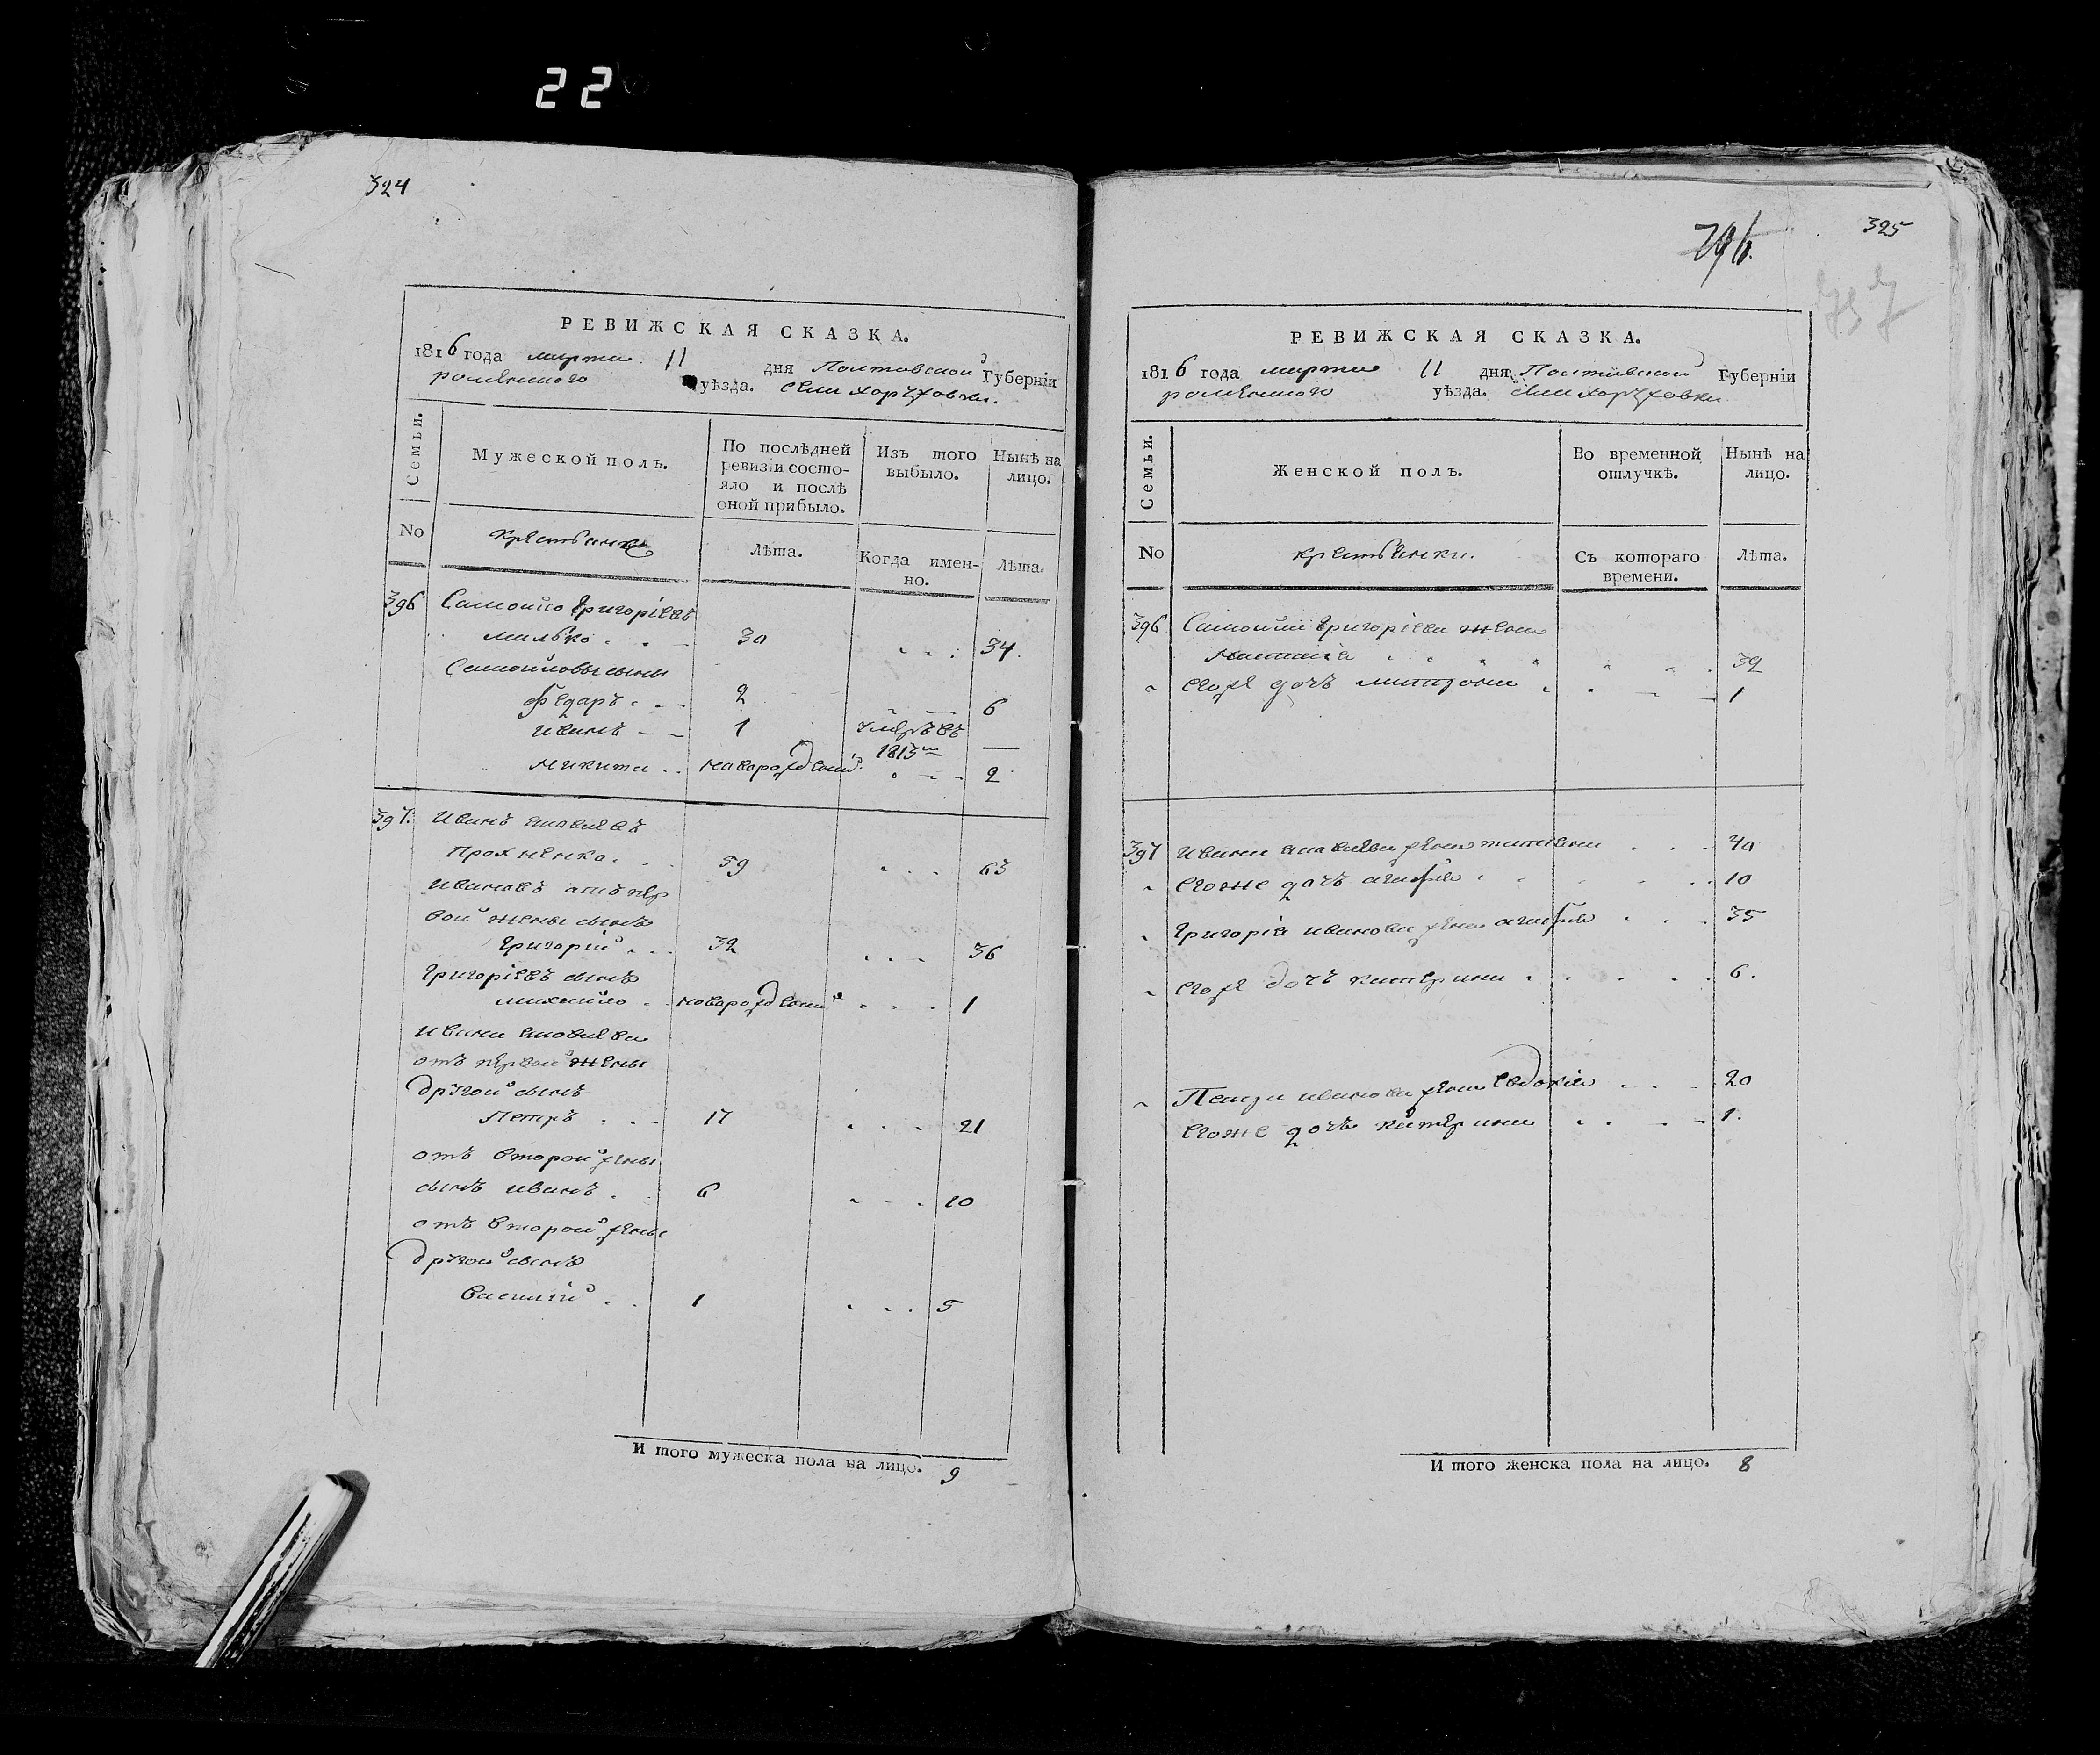 22
324
РЕВИЖСКАЯ СКАЗКА.
1816 года марта 11 дня Полтавской Губерніи
роменского уѣзда. села
Семьи.
Мужеской полъ.
По послѣдней ревизіи состояло и послѣ оной прибыло.
Изъ того выбыло.
Нынѣ на лицо.
No
крестьяне
Лѣта.
Когда именно.
Лѣта.
396 Самойло Григоріевъ
Милько 30 34
Самойловы сыны
Федаръ 2 6
Иванъ 1 умеръ въ 1813м —
Микита новорожденный 2
397. Иванъ
Прохненко 59 63
Ивановъ отъ пер
вой жены сынъ
Григорій 32 36
Григоріевъ сынъ
михайло новорожденный 1
Ивана
отъ первой жены
другой сынъ
Петръ 17 21
отъ второй жены
сынъ иванъ 6 10
отъ второй жены
другой сынъ
василій 1 5
И того мужеска пола на лицо. 9
796.
325
757
РЕВИЖСКАЯ СКАЗКА.
1816 года марта 11 дня Полтавской Губерніи
роменского уѣзда. села
Семьи.
Женской полъ.
Во временной отлучкѣ.
Нынѣ на лицо.
No
крестьянки.
Съ котораго времени.
Лѣта.
396 Самойла Григоріева жена
Наталія 32
его же дочь матрона 1
397 Ивана жена татіана 40
его же дочь агафія 10
Григорія иванова жена агафія 35
его же дочь катерина 6.
Петра иванова жена Евдокія 20
его же дочь катерина 1.
И того женска пола на лицо. 8